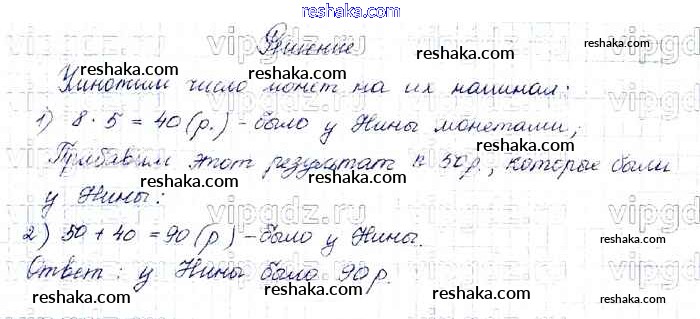 reshaka.com
Решение
reshaka.com reshaka.com
Умножим число монет на их наминал:
reshaka.com
1) 8 · 5 = 40 (р.) – было у Нины монетами;
reshaka.com reshaka.com
Прибавим этот результат к 50 р., которые были
reshaka.com
у Нины:
reshaka.com reshaka.com
2) 50 + 40 = 90 (р) – было у Нины.
reshaka.com
Ответ: у Нины было 90 р.
reshaka.com reshaka.com
vipgdz.ru